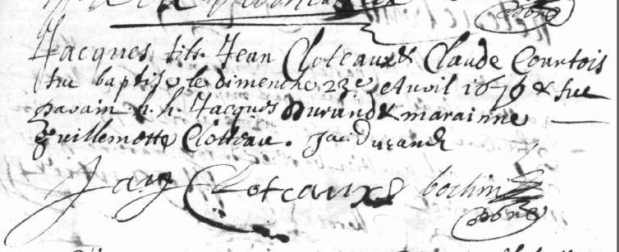 Jacques fils Jean Cloteaux & Claude Courtois
fut baptise le dimenche 23e Auvil 1679 & fut
parain h. h. Jacques Durand & marainne
guillemette Cloteau. Jac Durand
Jacq Cloteaux